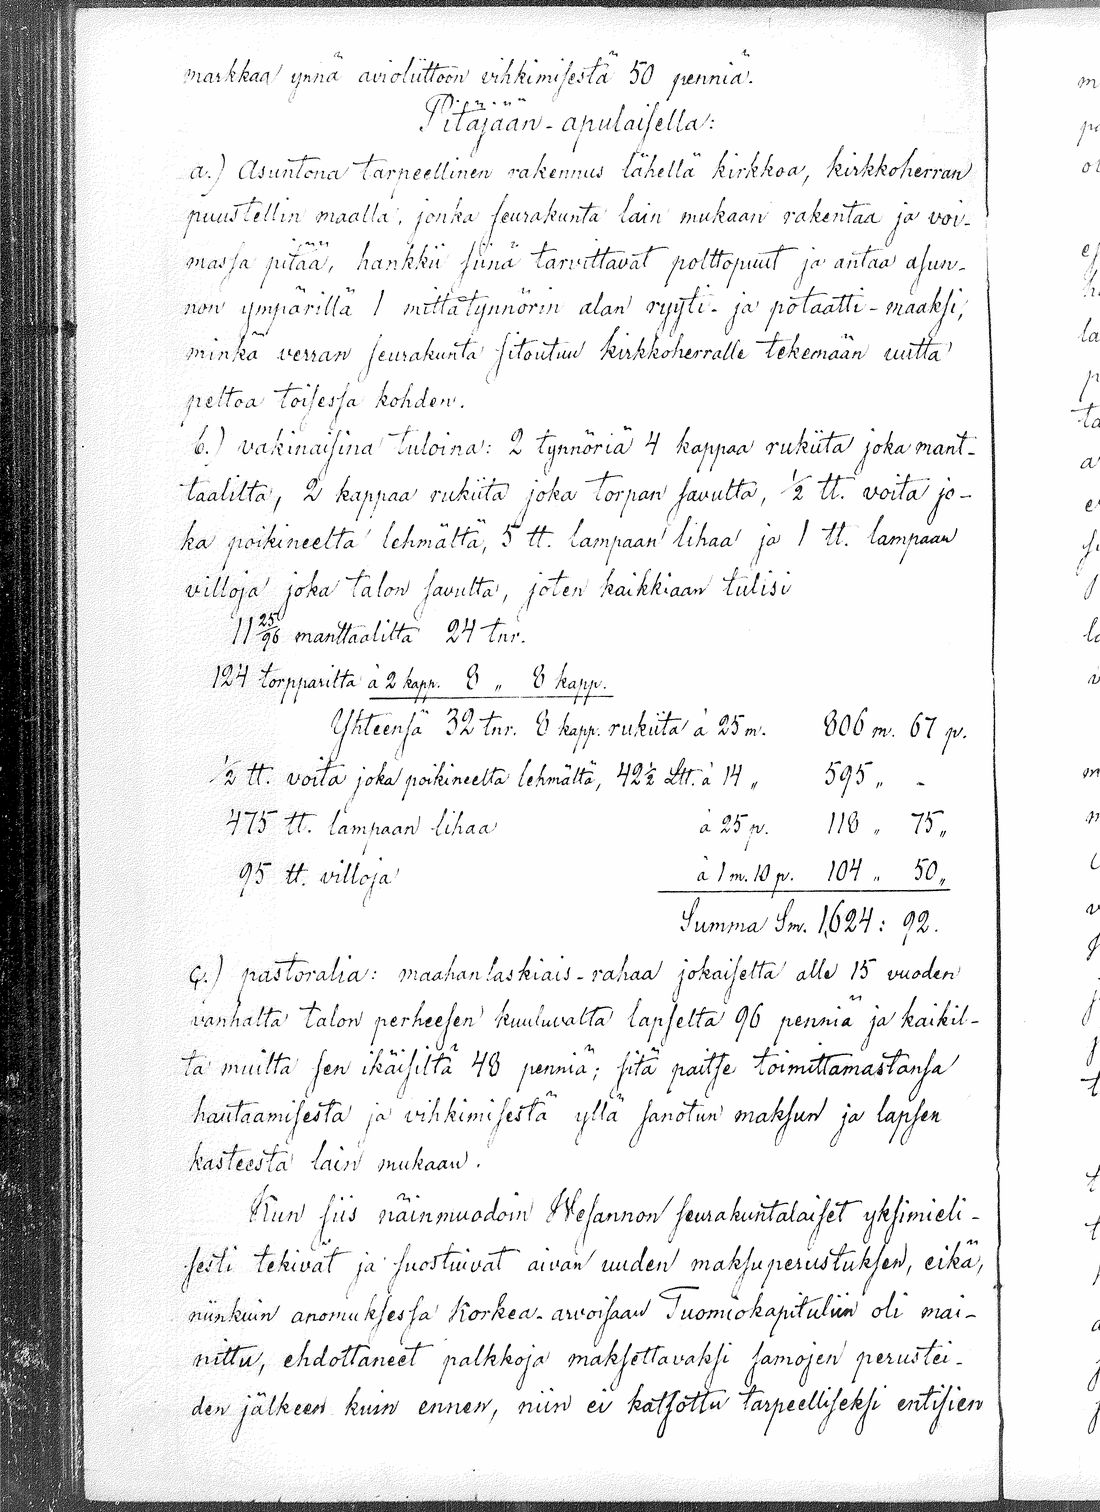 markkaa ynnä avioliittoon vihkimisestä 50 penniä.
Pitäjään-apulaisella:
a.) Asuntona tarpeellinen rakennus lähellä kirkkoa, kirkkoherran
puustellin maalla, jonka seurakunta lain mukaan rakentaa ja voi-
massa pitää, hankkii siinä tarvittavat polttopuut ja antaa asun-
non ympärillä 1 mittatynnörin alan ryyti- ja potaatti-maaksi,
minkä verran seurakunta sitoutuu kirkkoherralle tekemään uutta
peltoa toisessa kohden.
b.) vakinaisina tuloina: 2 tynnöriä 4 kappaa rukiita joka mant-
taalilta, 2 kappaa rukiita joka torpan savulta, ½ tt. voita jo-
ka poikineelta lehmältä, 5 tt. lampaan lihaa ja 1 tt. lampaan
villoja joka talon savulta, joten kaikkiaan tulisi
11 25/96 manttaalilta 24 tnr.
124 torpparilta à 2 kapp. 8 „ 8 kapp.
Yhteensä 32 tnr. 8 kapp. rukiita à 25 m. 806 m. 67 p.
½ tt. voita joka poikineelta lehmältä, 42½ Ltt. à 14 „ 595 „ -
475 tt. lampaan lihaa à 25 p. 118 „ 75 „
95 tt. villoja à 1 m. 10 p. 104 „ 50 „
Summa Sm. 1,624: 92.
c.) pastoralia: maahanlaskiais-rahaa jokaiselta alle 15 vuoden
vanhalta talon perheesen kuuluvalta lapselta 96 penniä ja kaikil-
ta muilta sen ikäisiltä 48 penniä; sitä paitse toimittamastansa
hautaamisesta ja vihkimisestä yllä sanotun maksun ja lapsen
kasteesta lain mukaan.
Kun siis näinmuodoin Wesannon seurakuntalaiset yksimieli-
sesti tekivät ja suostuivat aivan uuden maksuperustuksen, eikä,
niinkuin anomuksessa Korkea-arvoisaan Tuomiokapituliin oli mai-
nittu, ehdottaneet palkkoja maksettavaksi samojen perustei-
den jälkeen kuin ennen, niin ei katsottu tarpeelliseksi entisien